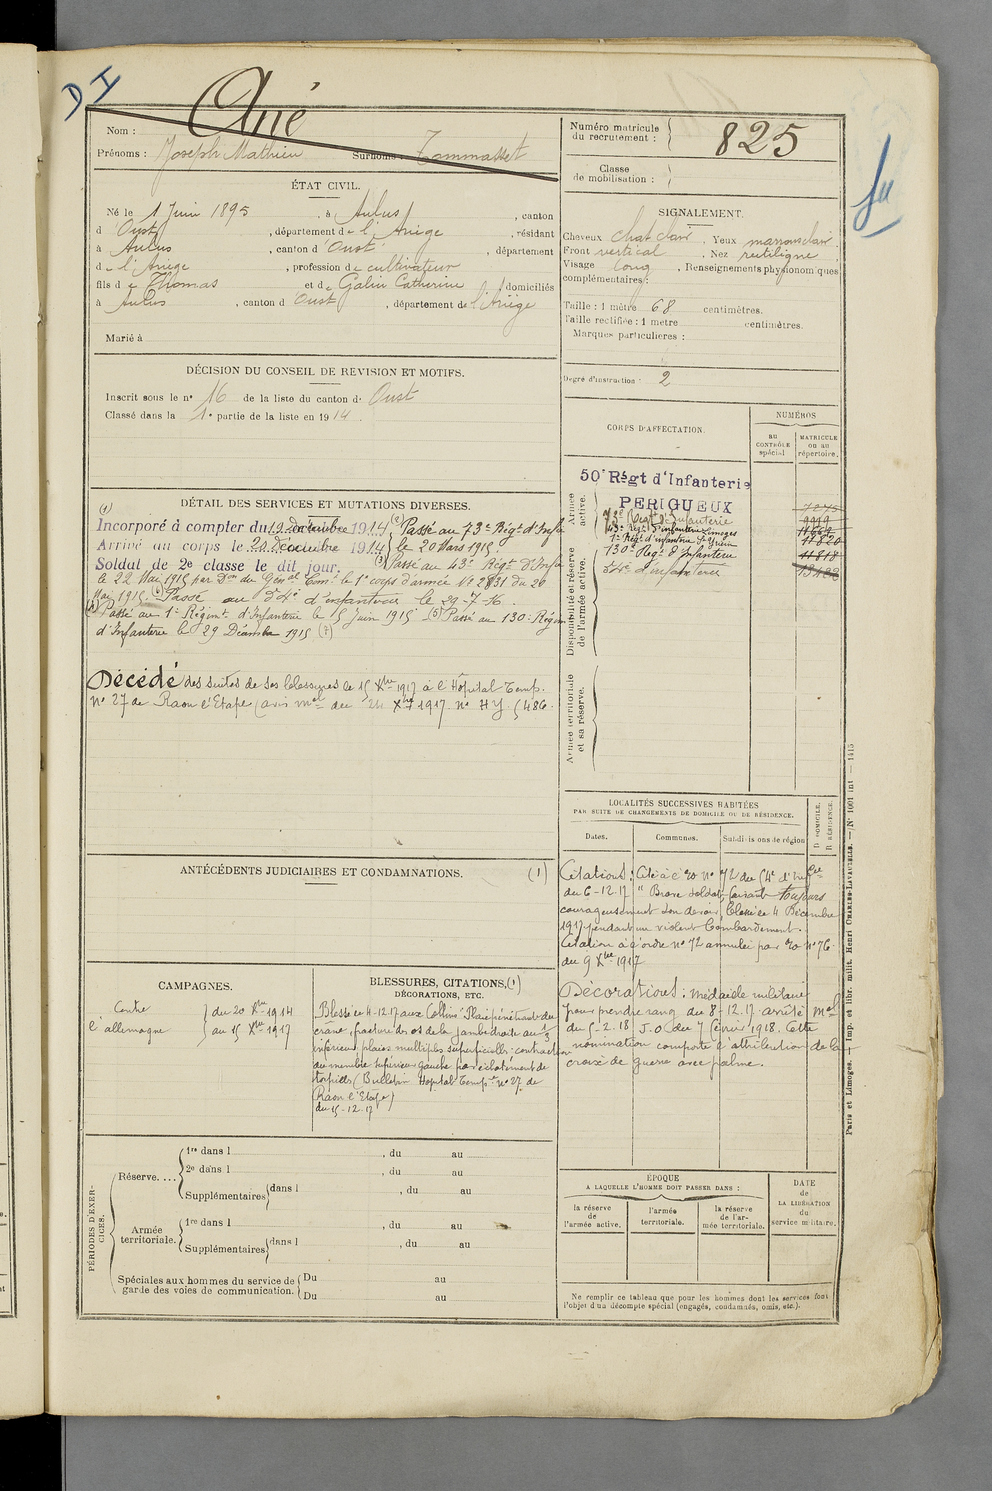 D I
Ané
Nom :
Prénoms : Joseph Mathieu Surnoms : Tommasset
ÉTAT CIVIL.
Né le 1 Juin 1895, à Aulus, canton
d'Oust, département de l'Ariège, résidant
à Aulus, canton d'Oust, département
de l'Ariège, profession de cultivateur
fils de Thomas et de Galin Catherine domiciliés
à Aulus, canton d'Oust, département de l'Ariège
Marié à
DÉCISION DU CONSEIL DE REVISION ET MOTIFS.
Inscrit sous le n° 16 de la liste du canton d' Oust
Classé dans la 1e partie de la liste en 1914.
DÉTAIL DES SERVICES ET MUTATIONS DIVERSES.
(1)
Incorporé à compter du 19 décembre 1914 (2) Passé au 73e Rég. d'Infie
Arrivé au corps le 20 Décembre 1914 le 20 Mars 1915.
Soldat de 2e classe le dit jour. (3) Passé au 43e Régt d'Infie
le 22 Mai 1915 par Don du Génal Comt le 1er corps d'armée No 2831 du 20
Mai 1915. (6) Passé au 54e d'infanterie le 29-7-16.
(4) Passé au 1er Régimt d'Infanterie le 15 Juin 1915 (5) Passé au 130e Régim
d'Infanterie le 29 Décembre 1915 (7)
Décédé des suites de ses blessures le 15 Xbre 1917 à l'Hôpital Temp.
No 27 de Raon l'Etape (avis mel du 24 Xbre 1917 no HY (486.
ANTÉCÉDENTS JUDICIAIRES ET CONDAMNATIONS. (1)
CAMPAGNES.
Contre
l'allemagne
du 20 Xbre 1914
au 15 Xbre 1917
BLESSURES, CITATIONS, (1)
DÉCORATIONS, ETC.
Blessé le 4-12-17 aux Plaie pénétrante du
crâne, fracture des os de la jambe droite au 1/3
inférieur plaies multiples superficielles : contraction
du membre supérieur gauche par éclatement de
torpilles (Bulletin Hopital Temp. no 27 de
Raon l'Etape)
du 15-12-17
PÉRIODES D'EXERCICES.
Réserve....
1re dans l , du au
2e dans l , du au
Supplémentaires dans l , du au
Armée territoriale.
1re dans l , du au
Supplémentaires dans l , du au
Spéciales aux hommes du service de garde des voies de communication.
Du au
Du au
Numéro matricule du recrutement : 825
Classe de mobilisation :
SIGNALEMENT.
Cheveux chat clair, Yeux marron clair.
Front vertical, Nez rectiligne,
Visage long, Renseignements physionomiques
complémentaires :
Taille : 1 mètre 68 centimètres.
Taille rectifiée : 1 mètre centimètres.
Marques particulières :
Degré d'instruction : 2
CORPS D'AFFECTATION.
NUMÉROS
au CONTRÔLE spécial
MATRICULE ou au répertoire.
Armée active.
Disponibilité et réserve de l'armée active.
Armée territoriale et sa réserve.
50e Régt d'Infanterie
PERIGUEUX
73e Régt d'Infanterie
43e Régt d'infanterie Limoges
1er Régt d'infanterie St Yrieix 11820
130e Régt d'Infanterie 11818
54e d'infanterie 13482
LOCALITÉS SUCCESSIVES HABITÉES
PAR SUITE DE CHANGEMENTS DE DOMICILE OU DE RÉSIDENCE.
Dates. Communes. Subdivisions de région D. DOMICILE. R. RÉSIDENCE.
Citations : Cité à l'ordre no 72 du 54e d'Infie
du 6-12-17 "Brave soldat, faisant toujours
courageusement son devoir, blessé le 4 Décembre
1917 pendant un violent bombardement.
Citation à l'ordre no 72 annulée par no 76
du 9 Xbre 1917
Décorations : médaille militaire
pour prendre rang du 8-12-17 arrêté mel
du 5-2-18 J.O du 7 février 1918. Cette
nomination comporte l'attribution de la
croix de guerre avec palme.
ÉPOQUE
A LAQUELLE L'HOMME DOIT PASSER DANS :
la réserve de l'armée active.
l'armée territoriale.
la réserve de l'armée territoriale.
DATE DE LA LIBÉRATION du service militaire.
Ne remplir ce tableau que pour les hommes dont les services font
l'objet d'un décompte spécial (engagés, condamnés, omis, etc.).
Paris et Limoges. — Imp. et libr. milit. Henri CHARLES-LAVAUZELLE. — N° 1001 int — 1415